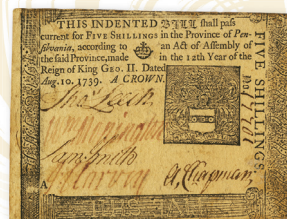 THIS INDENTED BILL shall pass
current for FIVE SHILLINGS in the Province of Pen-
silvania, according to an Act of Assembly of
the said Province, made in the 12 Year of the
Reign of King GEO. II. Dated
Aug. 10. 1739. A CROWN.
FIVE SHILLINGS.
No
Smith
A. Chapman
A